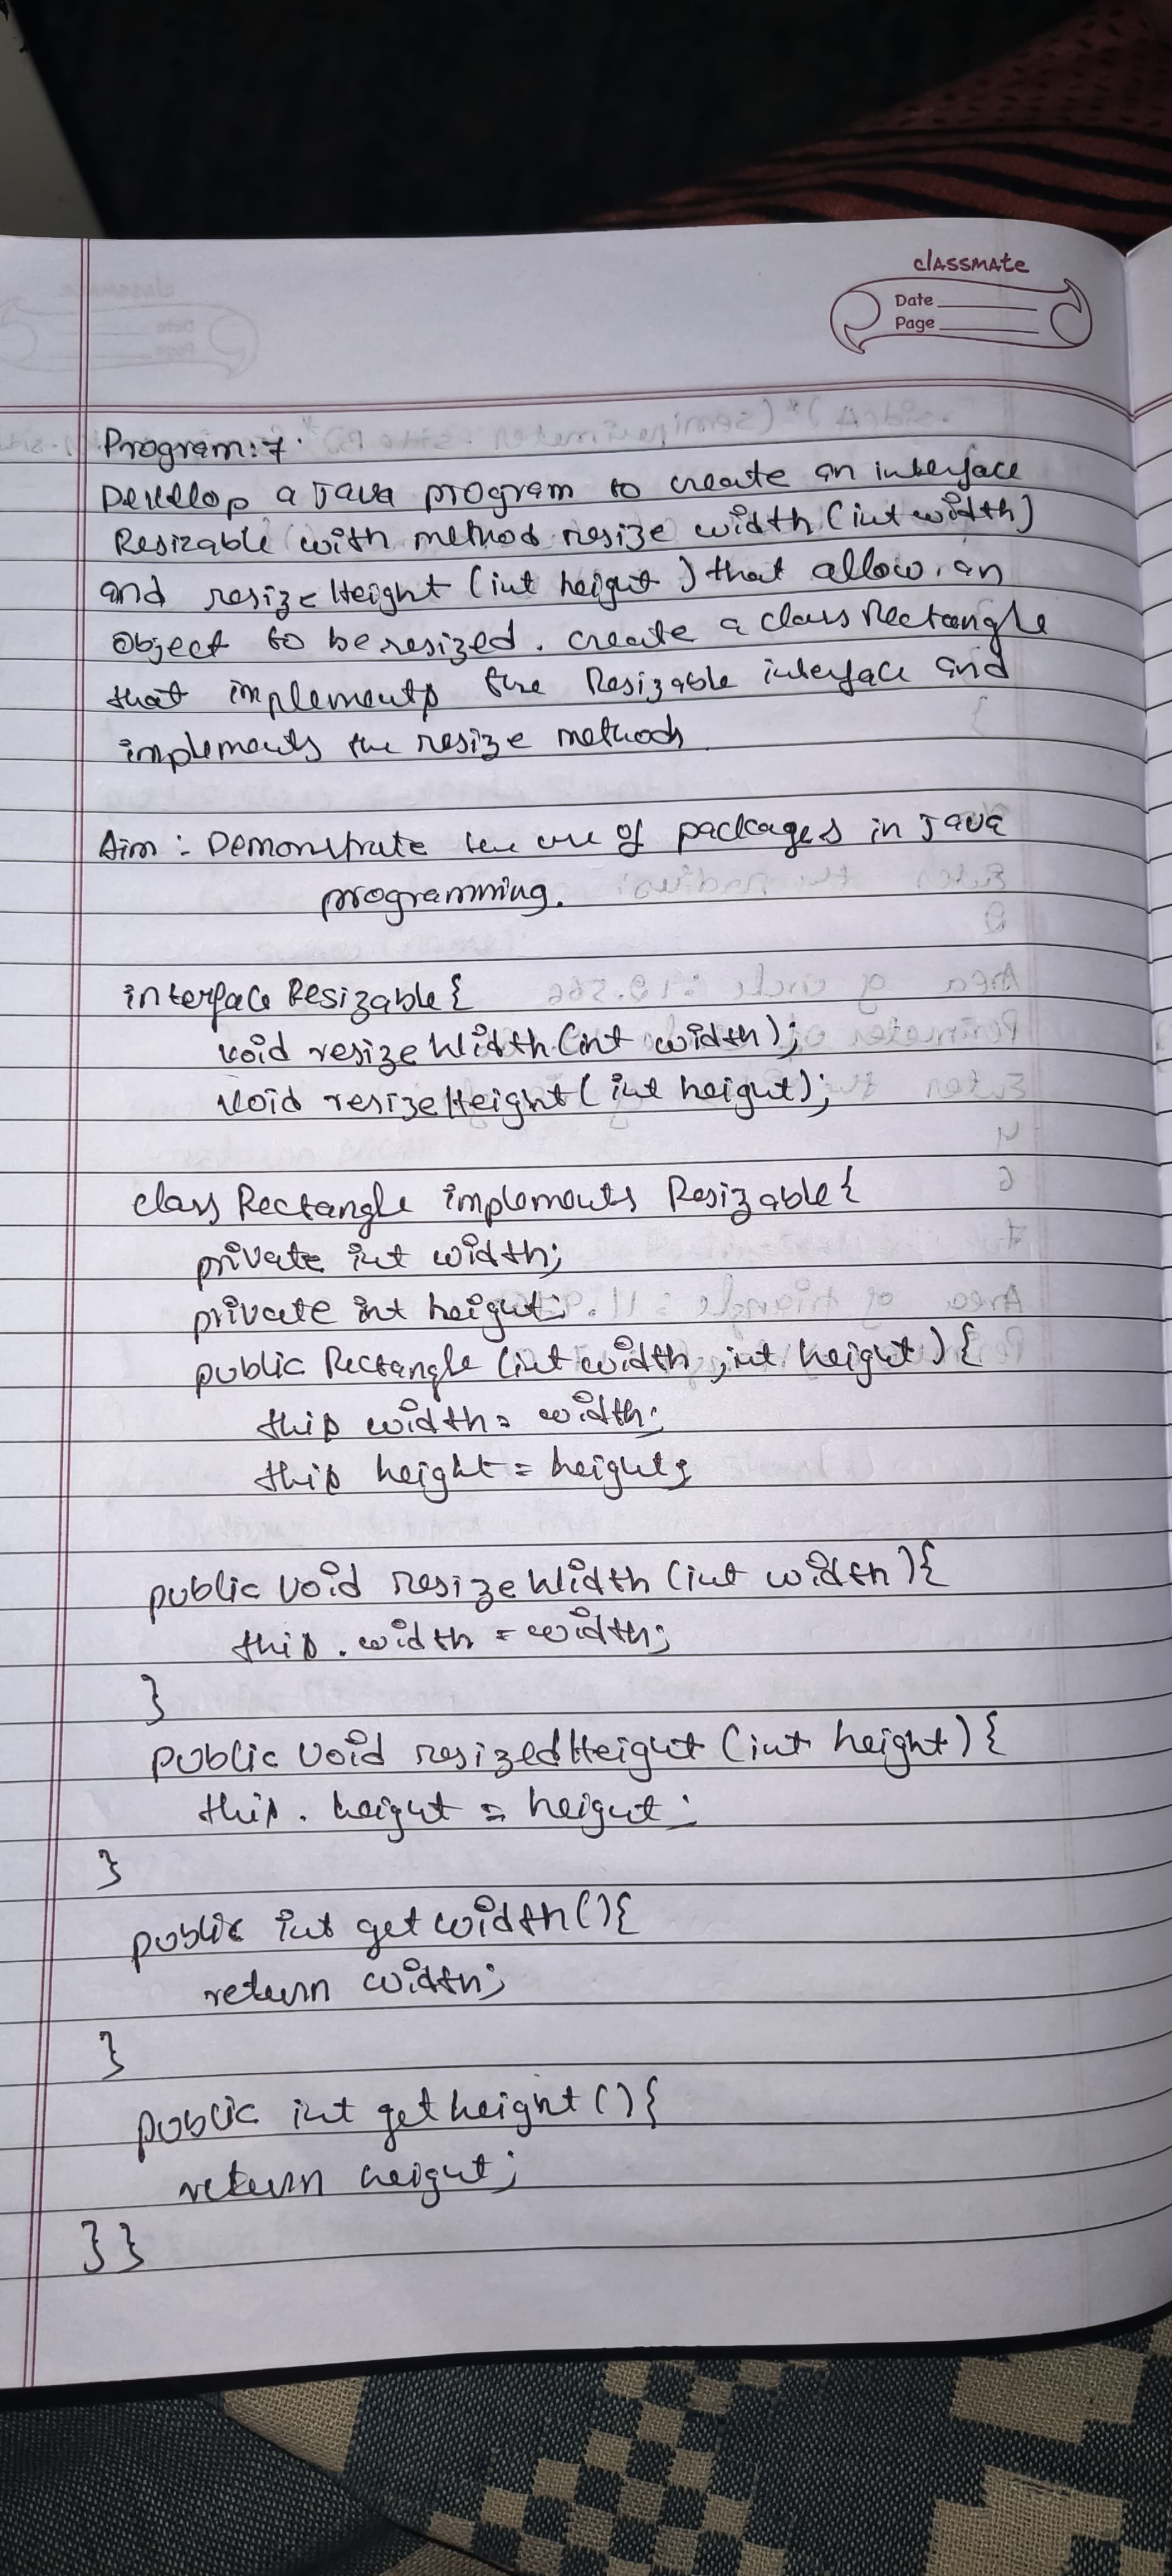 classmate
Date
Page
Program: 7.
Develop a Java program to create an interface
Resizable with method resize width (int width)
and resize Height (int height) that allow an
object to be resized. create a class Rectangle
that implements the Resizable interface and
implements the resize methods.
Aim: Demonstrate the use of packages in Java
programming.
interface Resizable {
void resize Width (int width);
void resize Height (int height);
class Rectangle implements Resizable {
private int width;
private int height;
public Rectangle (int width, int height) {
this width = width;
this height = height;
public void resize Width (int width) {
this.width = width;
}
public void resizedHeight (int height) {
this.height = height;
}
public int get width () {
return width;
}
public int get height () {
return height;
}}